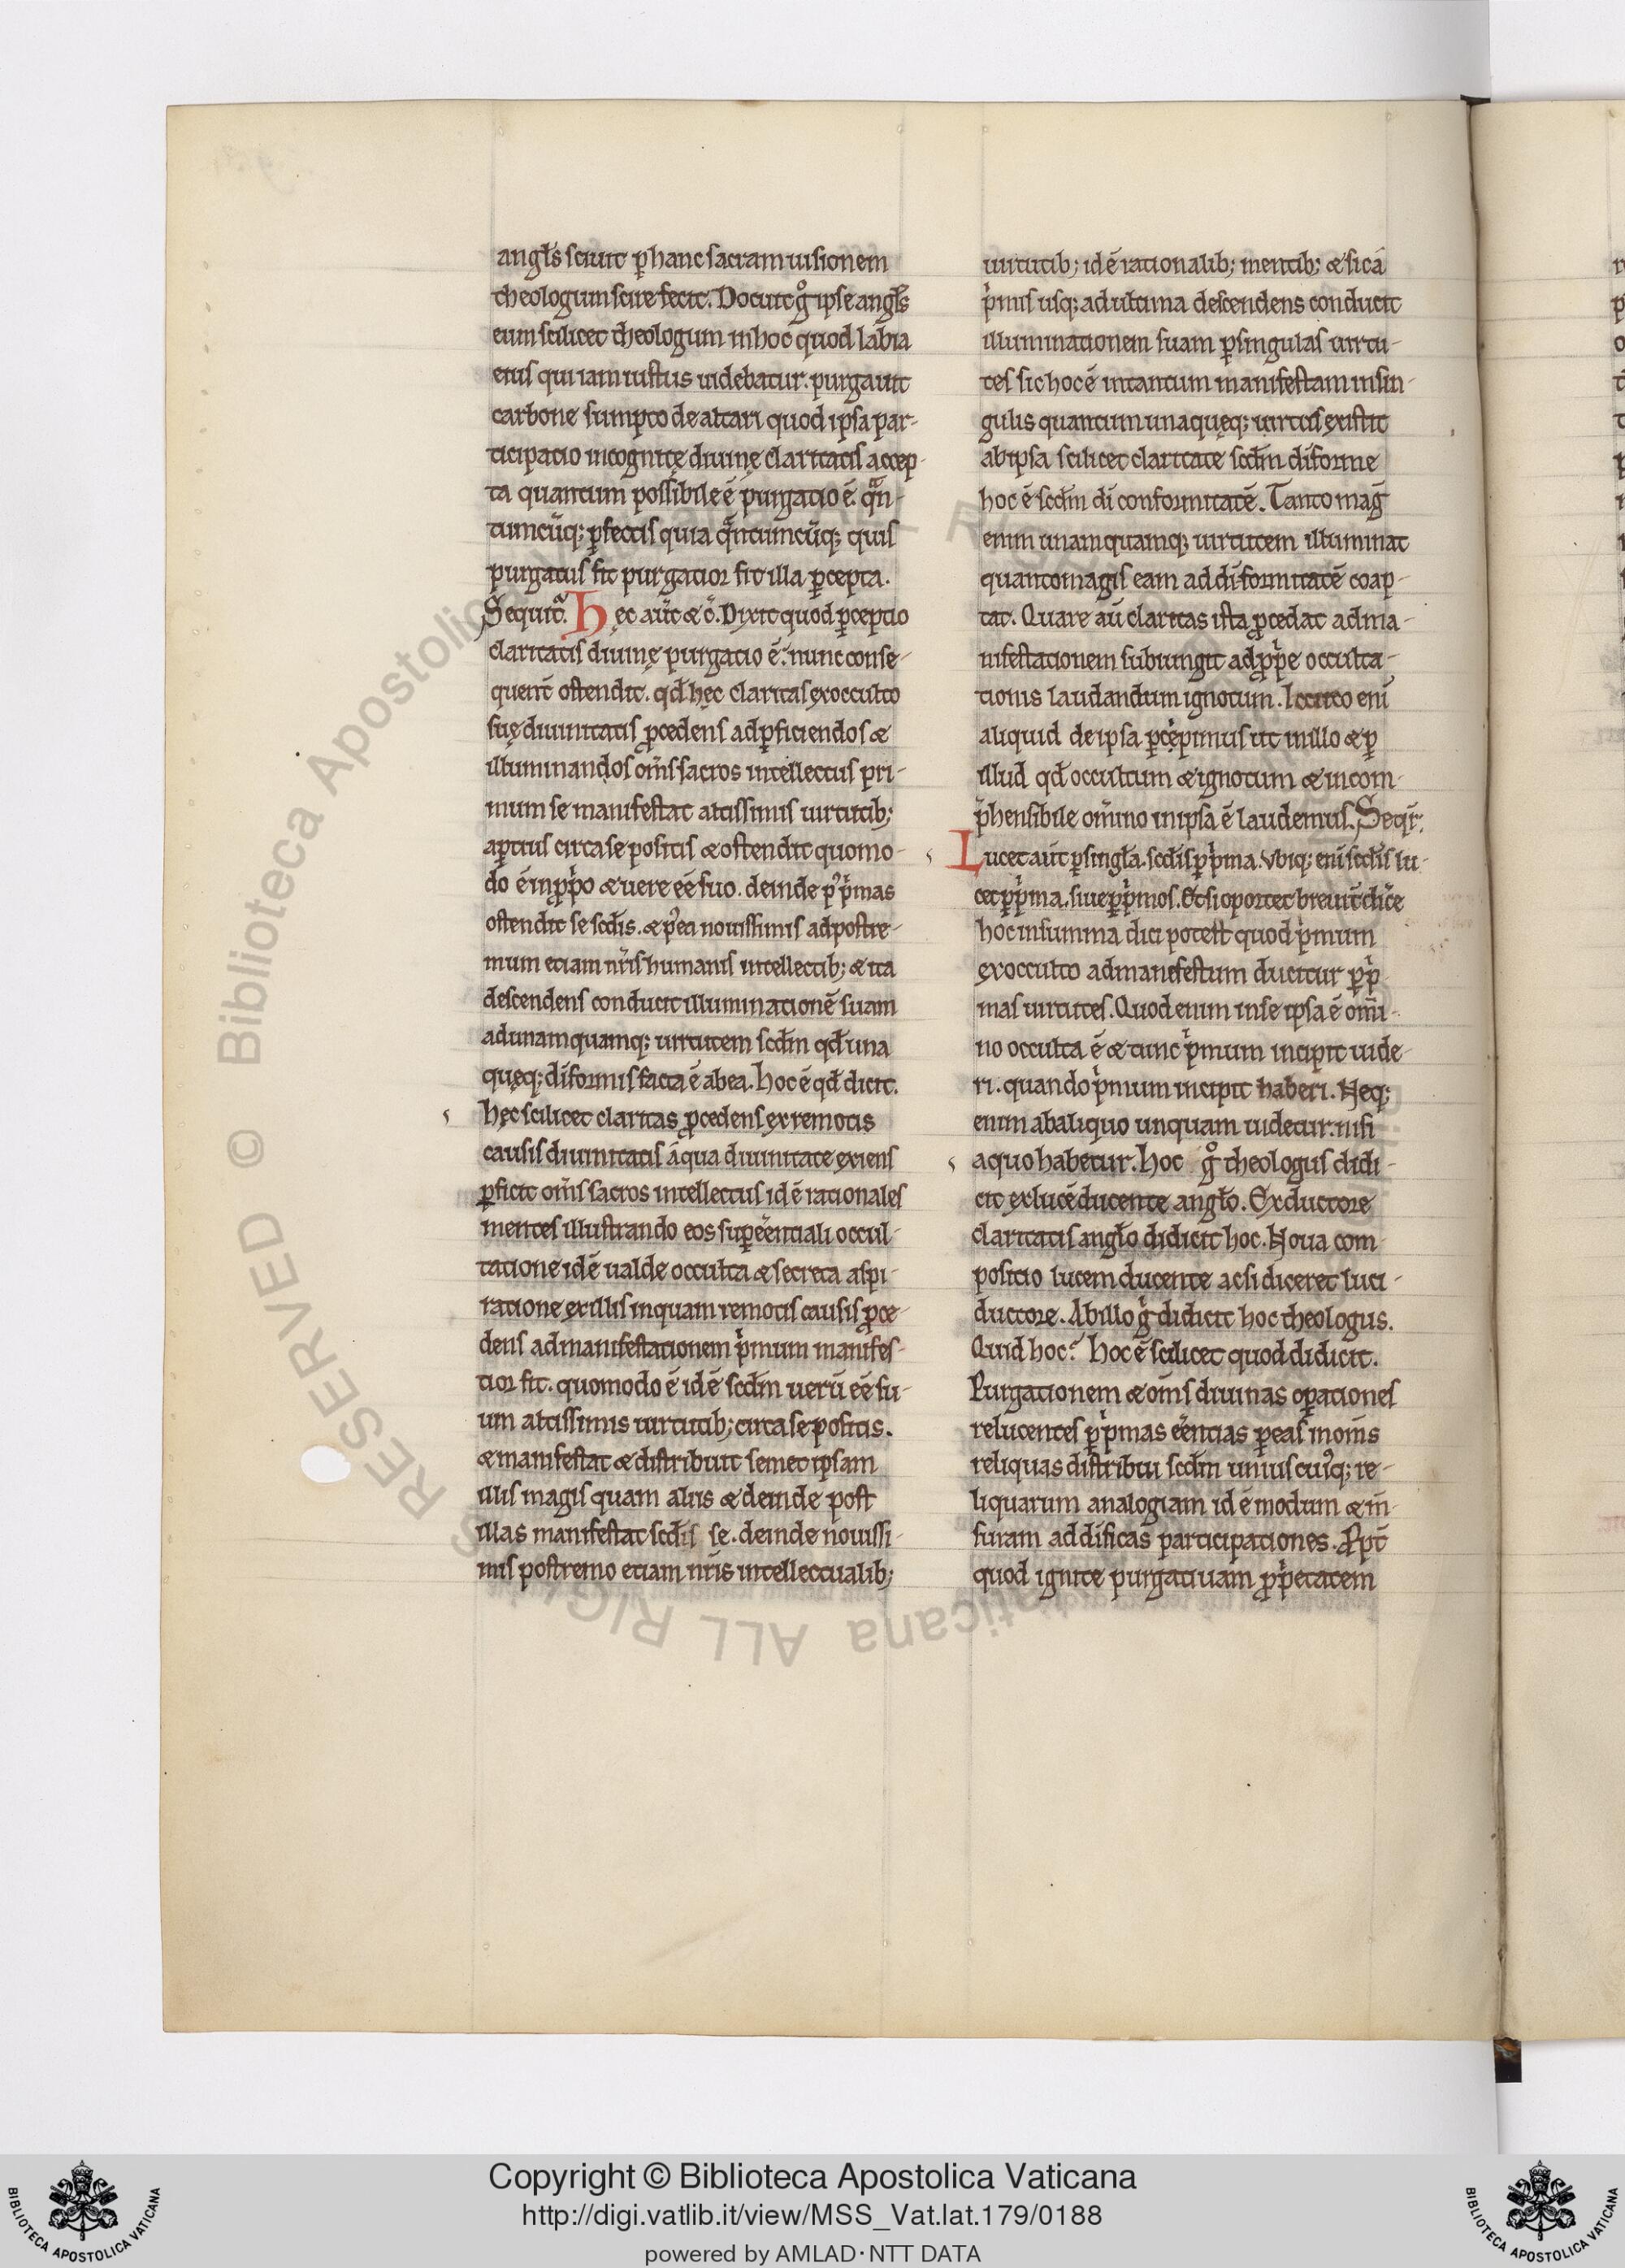 angłs sciuit ꝑ hanc sacram uisionem
theologum scire fecit. Docuit gͦ ipse angłs
eum scilicet theologum in hoc quod labia
eius qui iam iustus uidebatur. purgauit
carbone sumpto de altari quod ipsa par-
ticipatio incognitę diuinę claritatis accep-
ta quantum possibile ē purgatio ē. qᷓn-
tumcūq; ꝑfectis quia qᷓntumcūq; quis
purgatus sit purgatior fit illa ꝑcepta.
Sequitᷓ. Hęc aūt & c̄. Dixit quod ꝑceptio
claritatis diuinę purgatio ē: nunc conse-
quent̄ ostendit. qđ hęc claritas ex occulto
suę diuinitatis ꝓcedens ad ꝑficiendos &
illuminandos om̄s sacros intellectus pri-
mum se manifestat altissimis uirtutib;
aꝑtius circa se positis & ostendit quomo-
do ē in ꝓpͥo & uere eē suo. deinde pꝰ pͥmas
ostendit se scđis. & pꝰea nouissimis ad postre-
mum etiam nr̄is humanis intellectib; & ita
descendens conducit illuminationē suam
ad unamquamq; uirtutem scđm qđ una
quęq; diformis facta ē ab ea. hoc ē qđ dicit.
hęc scilicet claritas ꝓcedens ex remotis
causis diuinitatis á qua diuinitate exiens
ꝑficit om̄s sacros intellectus id ē rationales
mentes illustrando eos suꝑeēntiali occul-
tatione id ē ualde occulta & secreta aspi-
ratione ex illis inquam remotis causis ꝓce-
dens ad manifestationem pͥmum manifes-
tior fit. quomodo ē id ē scđm uerū eē su-
um altissimis uirtutib; circa se positis.
& manifestat & distribuit semet ipsam
illis magis quam aliis & deinde post
illas manifestat scđis se. deinde nouissi-
mis postremo etiam nr̄is intellectualib;
uirtutib; id ē rationalib; mentib; & sic á
pͥmis usq; ad ultima descendens conducit
illuminationem suam ꝑ singulas uirtu-
tes sic hoc ē in tantum manifestam in sin-
gulis quantum unaquęq; uirtus existit
ab ipsa scilicet claritate scđm diforme
hoc ē scđm di conformitatē. Tanto maḡ
enim unamquamq; uirtutem illuminat
quanto magis eam ad diformitatē coap-
tat. Quare aū claritas ista ꝓcedat ad ma-
nifestationem subiungit ad ꝓpͥe occulta-
tionis laudandum ignotum. Iccirco enī
aliquid de ipsa ꝑcępimus ut in illo & ꝑ
illud qđ occultum & ignotum & incom-
p̄hensibile om̄ino in ipsa ē laudemus. Seqͥr:
Lucet aūt ꝑ singła. scđis ꝑ pͥma. Vbiq; enī scđis lu-
cet ꝑ pͥma. siue ꝑ pͥmos. Et si oportet breuit̄ dic̄e
hoc in summa dici potest quod pͥmum
ex occulto ad manifestum ducitur ꝑ pͥ
mas uirtutes. Quod enim in se ipsa ē om̄i-
no occulta ē & tunc pͥmum incipit uide-
ri. quando pͥmum incipit haberi. Neq;
enim ab aliquo unquam uidetur. nisi
a quo habetur. Hoc gͦ theologus didi-
cit ex lucē ducente angło. Ex ductore
claritatis angło didicit hoc. Noua com-
positio lucem ducente acsi diceret luci-
ductore. Ab illo gͥ didicit hoc theologus.
Quid hoc? hoc ē scilicet quod didicit.
Purgationem & om̄s diuinas oꝑationes
relucentes ꝑ pͥmas eēntias ꝑ eas in om̄s
reliquas distribui scđm uniuscuiꝰq; re-
liquarum analogiam id ē modum & m̄-
suram ad dificas participationes. Ꝓpt̄
quod ignite purgatiuam ꝓpͥetatem
Copyright © Biblioteca Apostolica Vaticana
http://digi.vatlib.it/view/MSS_Vat.lat.179/0188
powered by AMLAD·NTT DATA
BIBLIOTECA APOSTOLICA VATICANA
BIBLIOTECA APOSTOLICA VATICANA